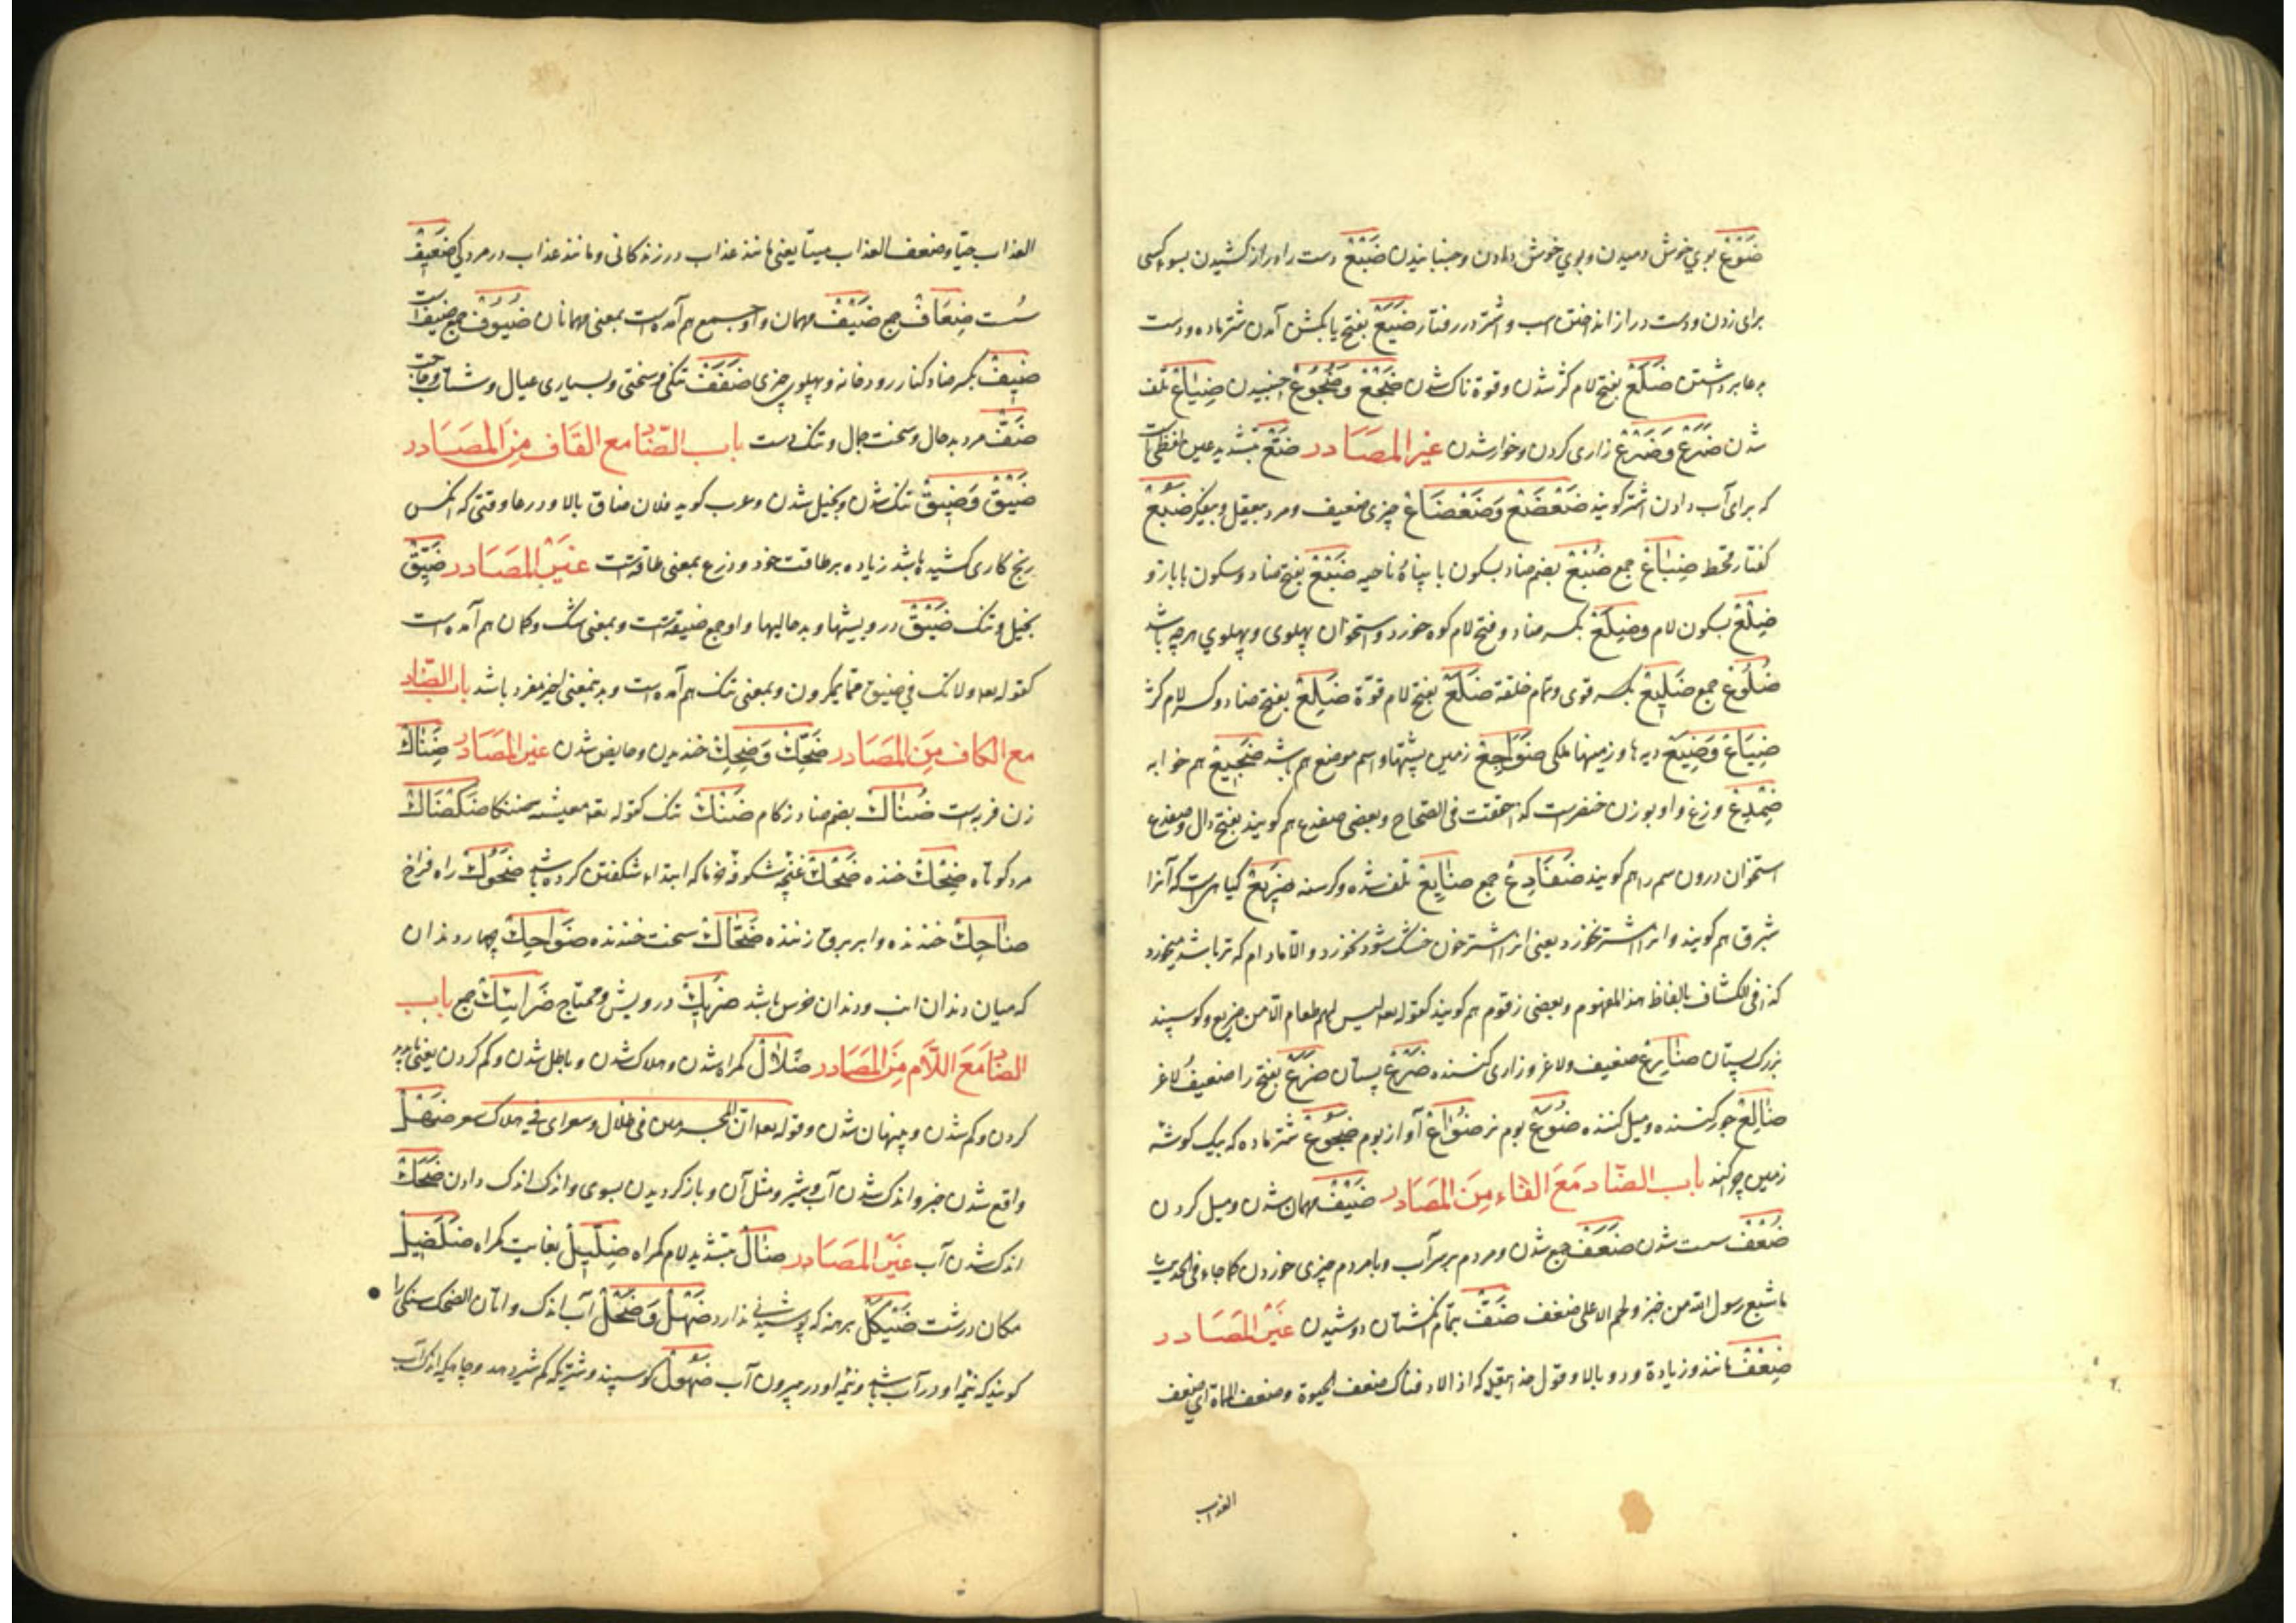 ضَوْع بوي خوش دميدن و بوي خوش دادن و جنبانيدن ضَبْع دست را دراز کشيدن بسوء کسی
برای زدن و دست دراز انداختن اسب و اشتر در رفتار ضَبَع بفتح با بکشن آمدن شتر ماده و دست
بدعا برداشتن ضَلَع بفتح لام کژ شدن و قوة ناک شدن ضَجْع وَضُجُوع خسبيدن ضِيَاع تلف
شدن ضَرَع وَضَرْع زاری کردن و خوار شدن غَيْرِ المَصَادر ضَعْ بتشديد عين لفظی است
که برای آب دادن اشتر گويند ضَعْضَع وَضَعْضَاع چيزی ضعيف و مرد بی‌عقل و بی‌فکر ضَبُع
کفتار و قحط ضِبَاع جمع ضُبْع بضم ضاد و سکون با پناه ناحيه ضَبْع بفتح ضاد و سکون با بازو
ضِلْع بسکون لام و ضِلَع بکسر ضاد و فتح لام کوه خورد و استخوان پهلوی و پهلوي هر چه باشد
ضُلُوع جمع ضَلِيع بکسر قوی و تمام خلقة ضَلَع بفتح لام قوّة ضَلِع بفتح ضاد و کسر لام کژ
ضِيَاع وَضِيَع ديه‌ها و زمينهاء ملکی ضَوَاجِع زمين پشتها و اسم موضع هم باشد ضَجِيع هم خوابه
ضِفْدِع وزغ و او بوزن خنصرست کذا حققت فی الصحاح و بعضی ضفدع هم گويند بفتح دال و ضفدع
استخوان درون سم را هم گويند ضَفَادِع جمع ضَايِع تلف شده و گرسنه ضَرِيع گياهيست که آنرا
شبرق هم گويند و انرا اشتر نخورد يعنی انرا اشتر چون خشک شود نخورد و الا مادام که تر باشد ميخورد
کذا فی الکشاف بالفاظ هذا المفهوم و بعضی زقوم هم گويند کقوله تعه ليس لهم طعام الّا من ضريع و گوسپند
بزرگ پستان ضَارِع ضعيف و لاغر و زاری کننده ضَرْع پستان ضَرَع بفتح را ضعيف و لاغر
ضَالِع جور کننده و ميل کننده ضُوَع بوم نر ضُوَاع آواز بوم ضَجُوع شتر ماده که بيک گوشه
زمين چرا کند باب الضّاد مَعَ الفَاء مِنَ المَصَادر ضَيْف مهمان شدن و ميل کردن
ضُعْف سست شدن ضَفَف جمع شدن و مردم بر سر آب و با مردم چيزی خوردن کما جاء فی الحديث
ما شبع رسول الله من خبز و لحم الا علی ضفف ضَفّ بتمام انگشتان دوشيدن غَيْرِ المَصَادر
ضِعْف مانند و زيادة و دو بالا و قول خدا تعالی که اذا لاذقناک ضعف الحيوة و ضعف المماة ای ضعف
العذاب
العذاب حيّا و ضعف العذاب ميتا يعنی مانند عذاب در زندگانی و مانند عذاب در مردگی ضَعِيف
سُست ضِعَاف جمع ضَيْف مهمان و او جمع هم آمده است بمعنی مهمانان ضُيُوف جمع ضيف است
ضِيف بکسر ضاد کنار رودخانه و پهلوی چيزی ضَفَف تنگی و سختی و بسياری عيال و شتاب و حاجت
ضَفّ مرد بد حال و سخت حال و تنگ دست باب الضّاد مع القَاف مِنَ المَصَادر
ضَيْق وَضِيق تنگ شدن و بخيل شدن و عرب گويد فلان ضاق بالا و درعا وقتی که انکس
رنج کاری کشيده باشد زياده بر طاقت خود و ذرع بمعنی طاقتست غَيْرِ المَصَادر ضَيِّق
بخيل و تنگ ضَيْق درويشها و بد حاليها و او جمع ضيقة است و بمعنی شک و گمان هم آمده است
کقوله تعه ولا تک في ضيق مّما يمکرون و بمعنی تنگ هم آمده است و بدين معنی اخير مفرد باشد باب الضّاد
مع الکاف مِنَ المَصَادر ضَحْك وَضَحِك خنديدن و حايض شدن غَيْرِ المَصَادر ضِنَاك
زن فربه است ضُنَاك بضم ضاد زکام ضَنْك تنگ کقوله تعه معيشة ضنکا ضَکْضَاك
مرد کوتاه ضِحْك خنده ضَحْك غنچه شکوفه خرما که ابتداء شکفتن کرده باشد ضَحُوك راه فراخ
ضَاحِك خندنده و ابر برق زننده ضَحَّاك سخت خندنده ضَوَاحِك چهار دندان
که ميان دندان انياب و دندان ضرس باشد ضَرِيك درويش و محتاج ضَرَائِك جمع باب
الضاد مَعَ اللَّام مِنَ المَصَادر ضَلَال گمراه شدن و هلاک شدن و باطل شدن و گم کردن يعنی ناپديد
کردن و گم شدن و پنهان شدن و قوله تعه ان المجرمين فی ضلال و سعر ای فی هلاک و سعر ضَهْل
واقع شدن خبر و اندک شدن آب و شير و مثل آن و باز گرديدن بسوی و اندک اندک دادن ضَحْل
اندک شدن آب غَيْرِ المَصَادر ضَالّ بتشديد لام گمراه ضِلِّيل بغايت گمراه ضَلَضِل
مکان درشت ضَيْکَل برهنه که پوشيدنی ندارد ضَهْل وَضَحْل آب اندک و اتان الضحل سنگی را
گويند که نيمه او در آب باشد و نيمه او در بيرون آب ضَهُول گوسپند و شتری که کم شير دهد و چاهی که اندک آب